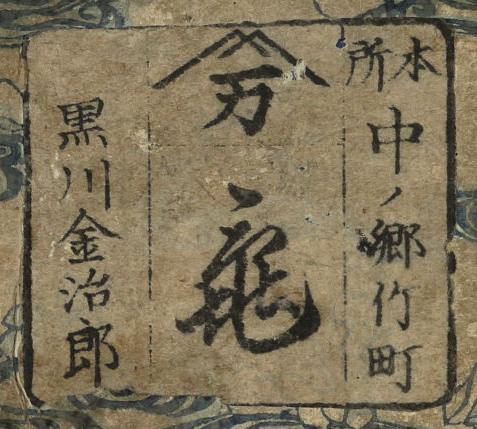 本所
中ノ郷竹町
万
亀
黒川金治郎